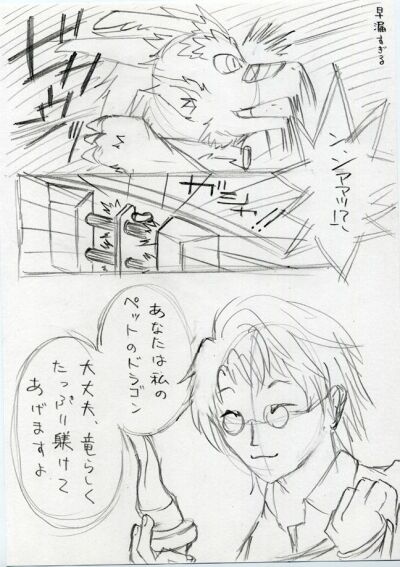 早漏すぎる
ン、ンアアアッ!?
ガシャ
ン!!
あなたは私の
ペットのドラゴン
大丈夫、竜らしく
たっぷり躾けて
あげますよ